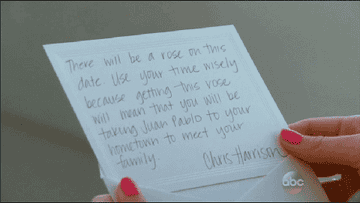 There will be a rose on this
date Use your time wisely
because getting this rose
will mean that you will be
taking Juan Pablo to your
hometown to meet your
family.
Chris Harrison
abc